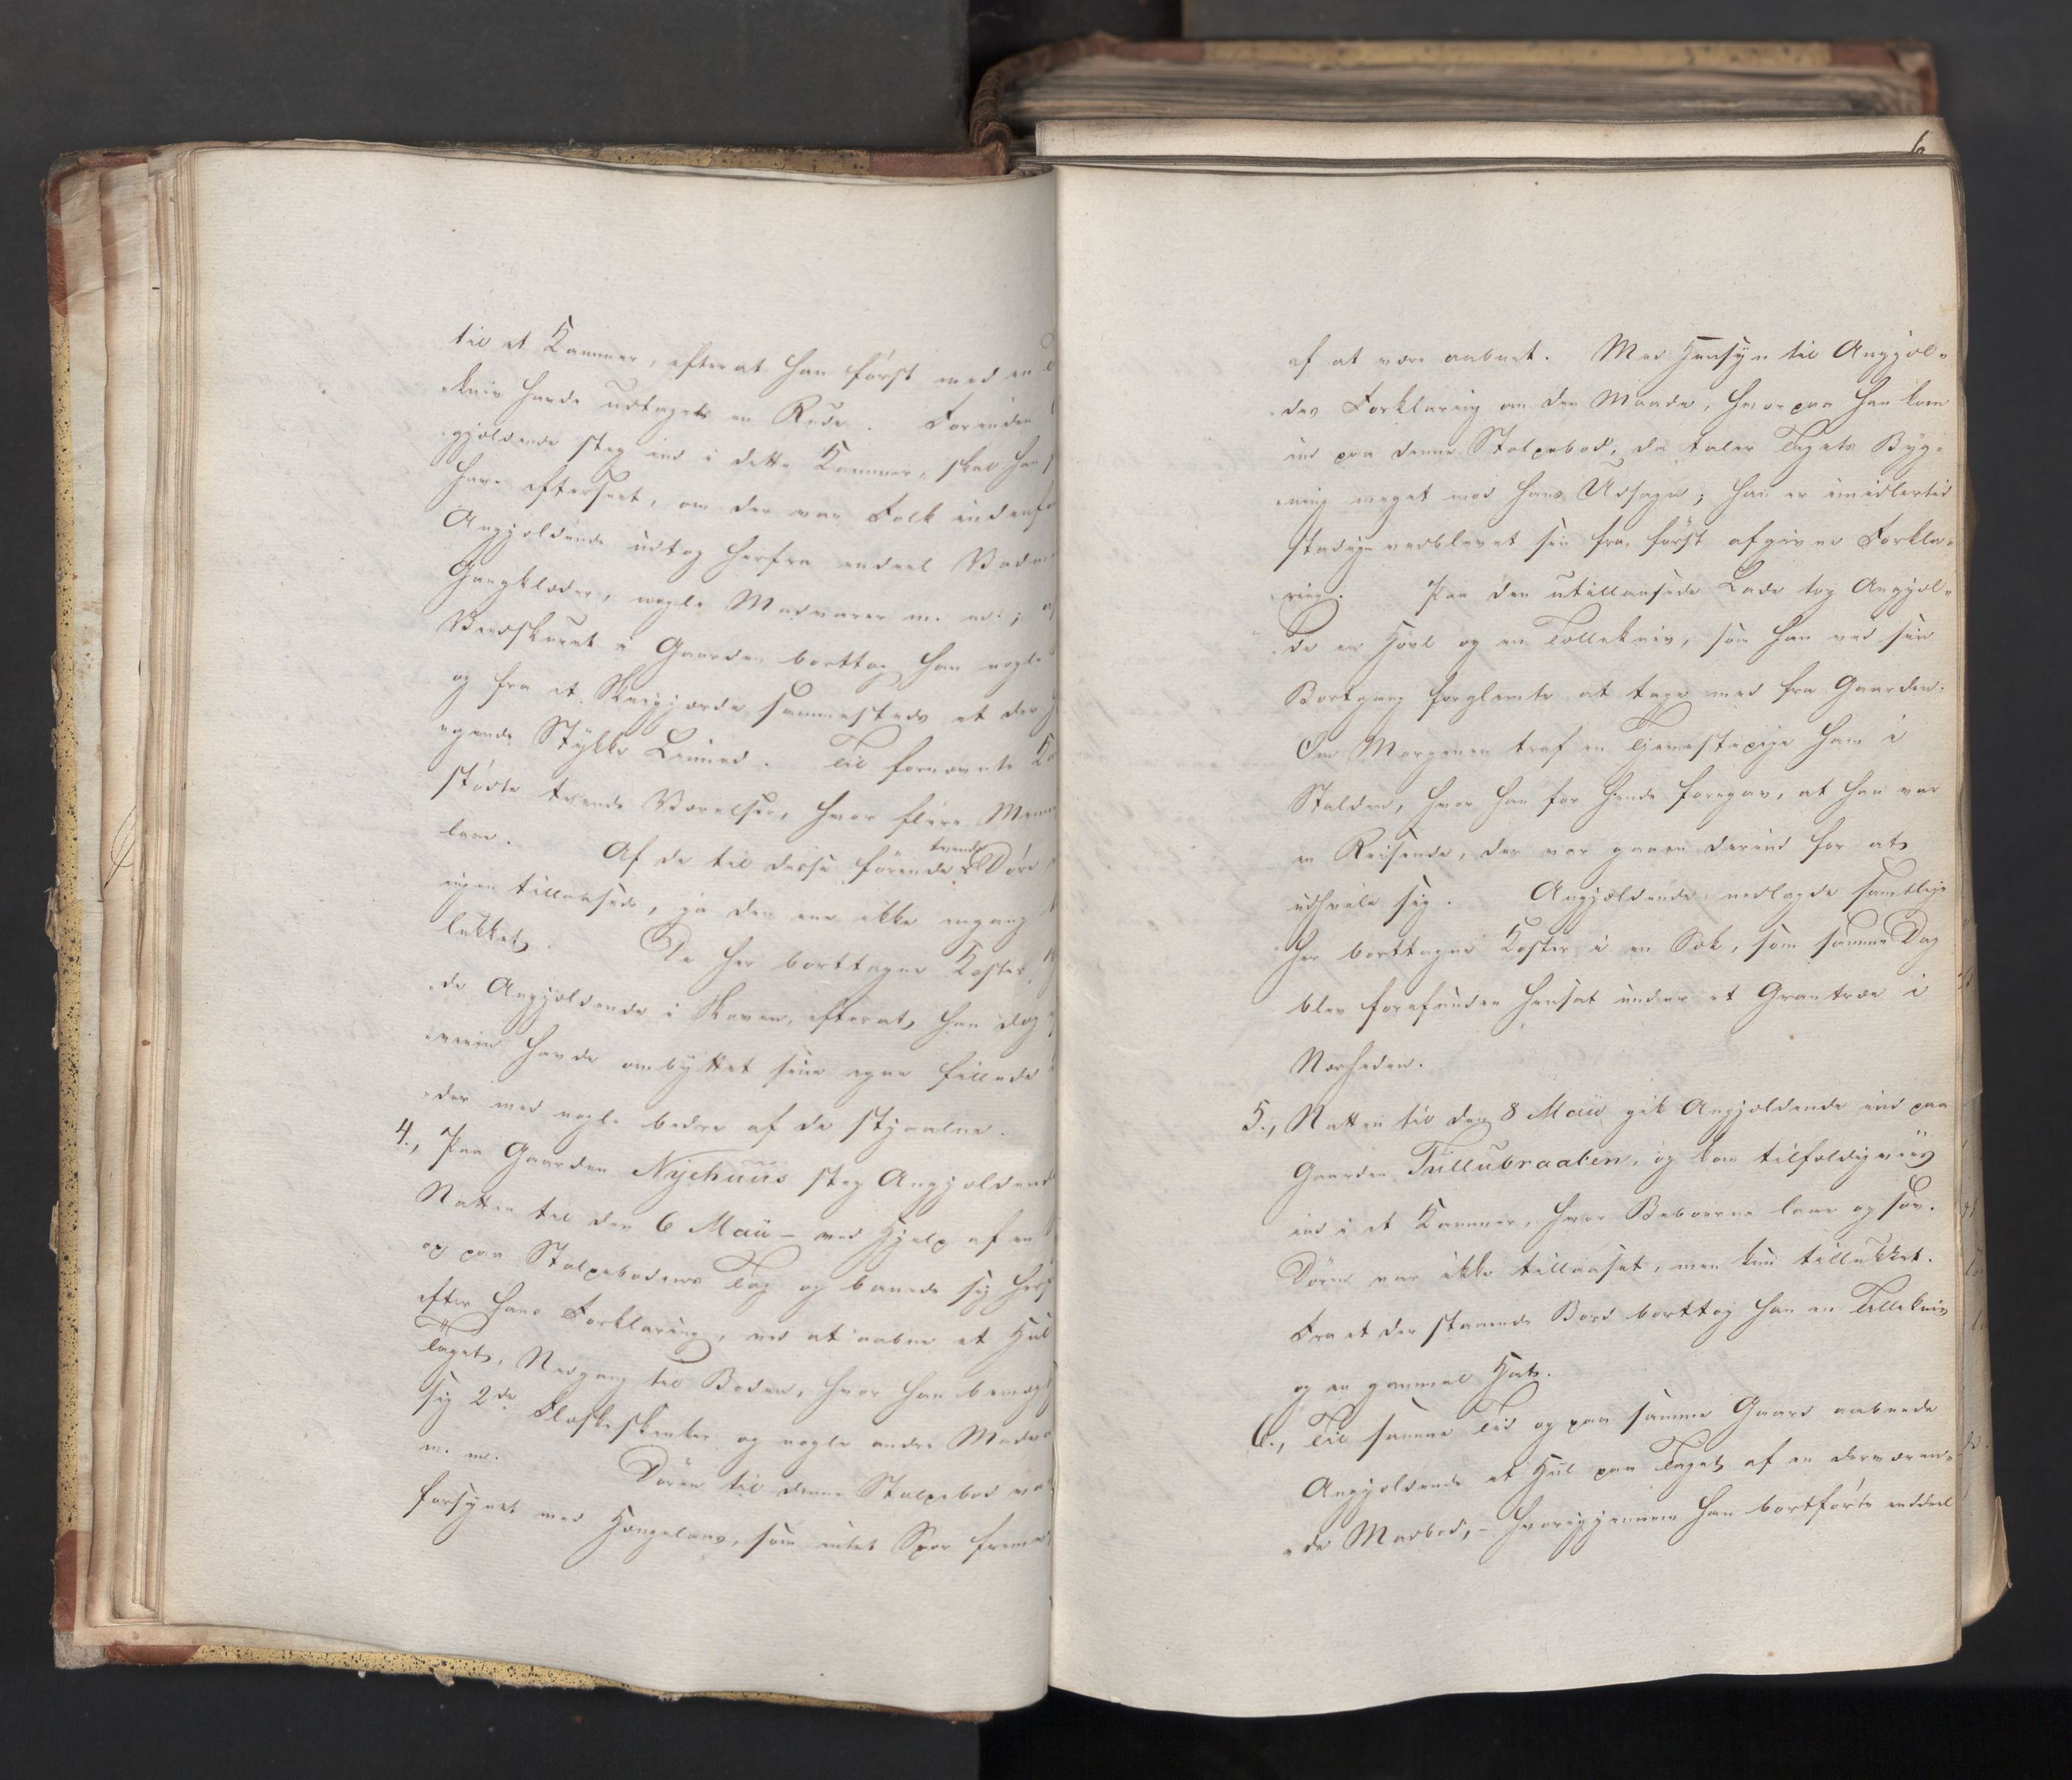 til et Kammer, efterat han først med en
Kniv havde udtaget en Rude. Forinden
gjældende steg ind i dette Kammer, skal han
have efterseet, om der var Folk indenf
Angjældende udtog herfra endeel Vadm
Gangklæder, nogle Madvarer m. m.; af
Vedskuret i Gaarden borttog han nogle
og fra et Skigjærde sammesteds et der
egende Stykke Lærred. Til fornævnte Ka
stødte tvende Værelser, hvor flere Menn
laae. Af de til disse førende tvende Døre
ingen tillaasede, ja den ene ikke engang
lukket. De her borttagne Koster
de Angjældende i Skoven, efterat han dog
veiin havde ombyttet sine egne fillede
der med nogle bedre af de stjaalne.
4., Paa Gaarden Nyehuus steg Angjældend
Natten til den 6 Maii – ved Hjelp af en
op paa Stolpebodens Tag og banede sig her
efter hans Forklaring, ved at aabne et Hul
Taget, Nedgang til Boden, hvor han bemæg
sig 2de Fleskeskinker og nogle andre Madva
m. m. Døren til denne Stolpebod var
forsynet med Hængelaas, som intet Spor frem
6
af at være aabnet. Med Hensyn til Angjæl-
des Forklaring om den Maade, hvorpaa han kom
ind paa denne Stolpebod, da taler Tagets Byg-
ning meget mod hans Udsagn; han er imidlertid
stadig vedblevet sin fra først afgivne Forkla-
ring. Paa den utillaasede Lade tog Angjæl-
de en Høvl og en Tollekniv, som han ved sin
Bortgang forglemte at tage med fra Gaarden.
Om Morgenen traf en Tjenestepige ham i
Stalden, hvor han for hende foregav, at han var
en Reisende, der var gaaen derind for at
udhvile sig. Angjældende nedlagde samtlige
her borttagne Koster i en Sæk, som samme Dag
blev forefunden hensat under et Grantræe i
Nærheden.
5., Natten til den 8 Maii gik Angjældende ind paa
Gaarden Tullubraaten, og kom tilfældigviis
ind i et Kammer, hvor Beboerne laae og sov.
Døren var ikke tillaaset, men kun tillukket.
Fra et der staaende Bord borttog han en Tollekniv
og en gammel Hat.
6., Til samme Tid og paa samme Gaard aabnede
Angjældende et Hul paa Taget af en derværen-
de Madbod, – hvorigjennem han bortførte enddeel